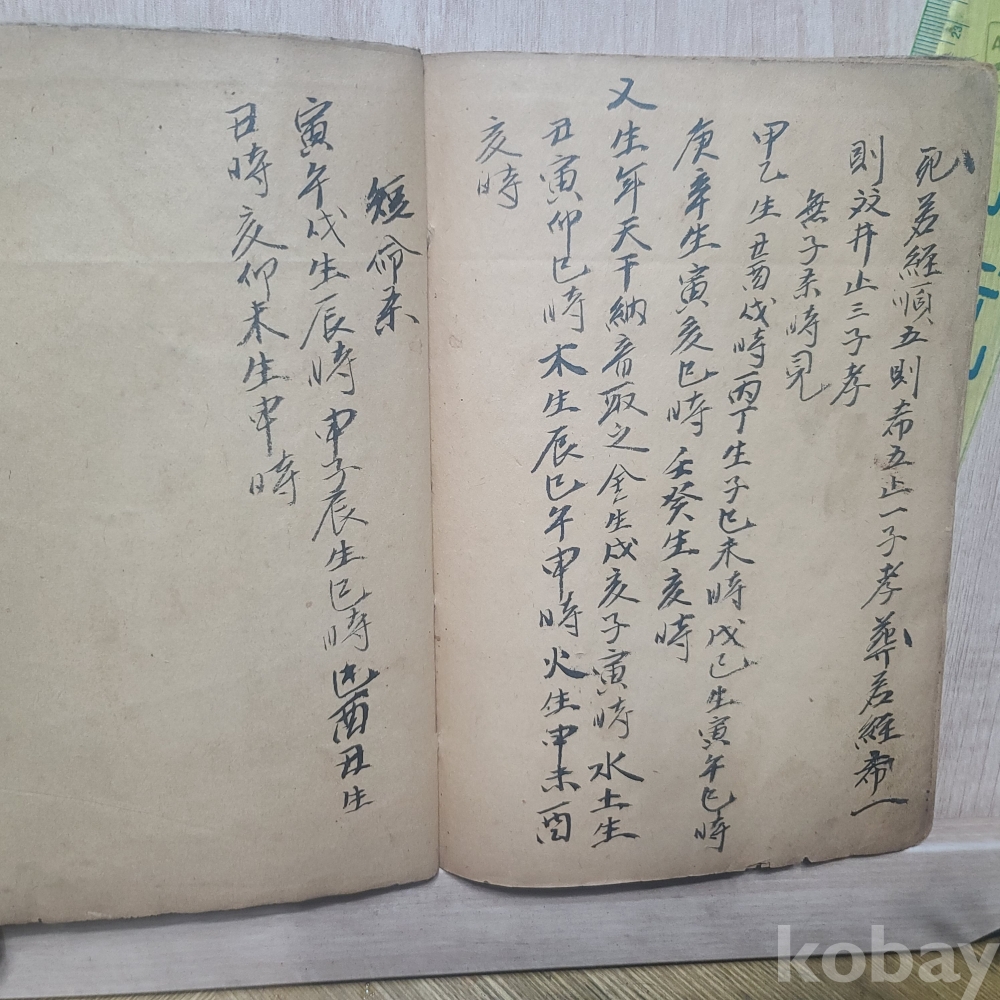 死若經順五則希五止一子孝葬若經希一
則 井止三子孝
無子 時見
甲乙生丑酉戌時丙丁生子巳未時戊己生寅午巳時
庚辛生寅亥巳時壬癸生亥時
又生年天干納音取之金生戌亥子寅時水土生
丑寅卯巳時木生辰巳午申時火生申未酉
亥時
短命
寅午戌生辰時申子辰生巳時巳酉丑生
丑時亥卯未生申時
kobay